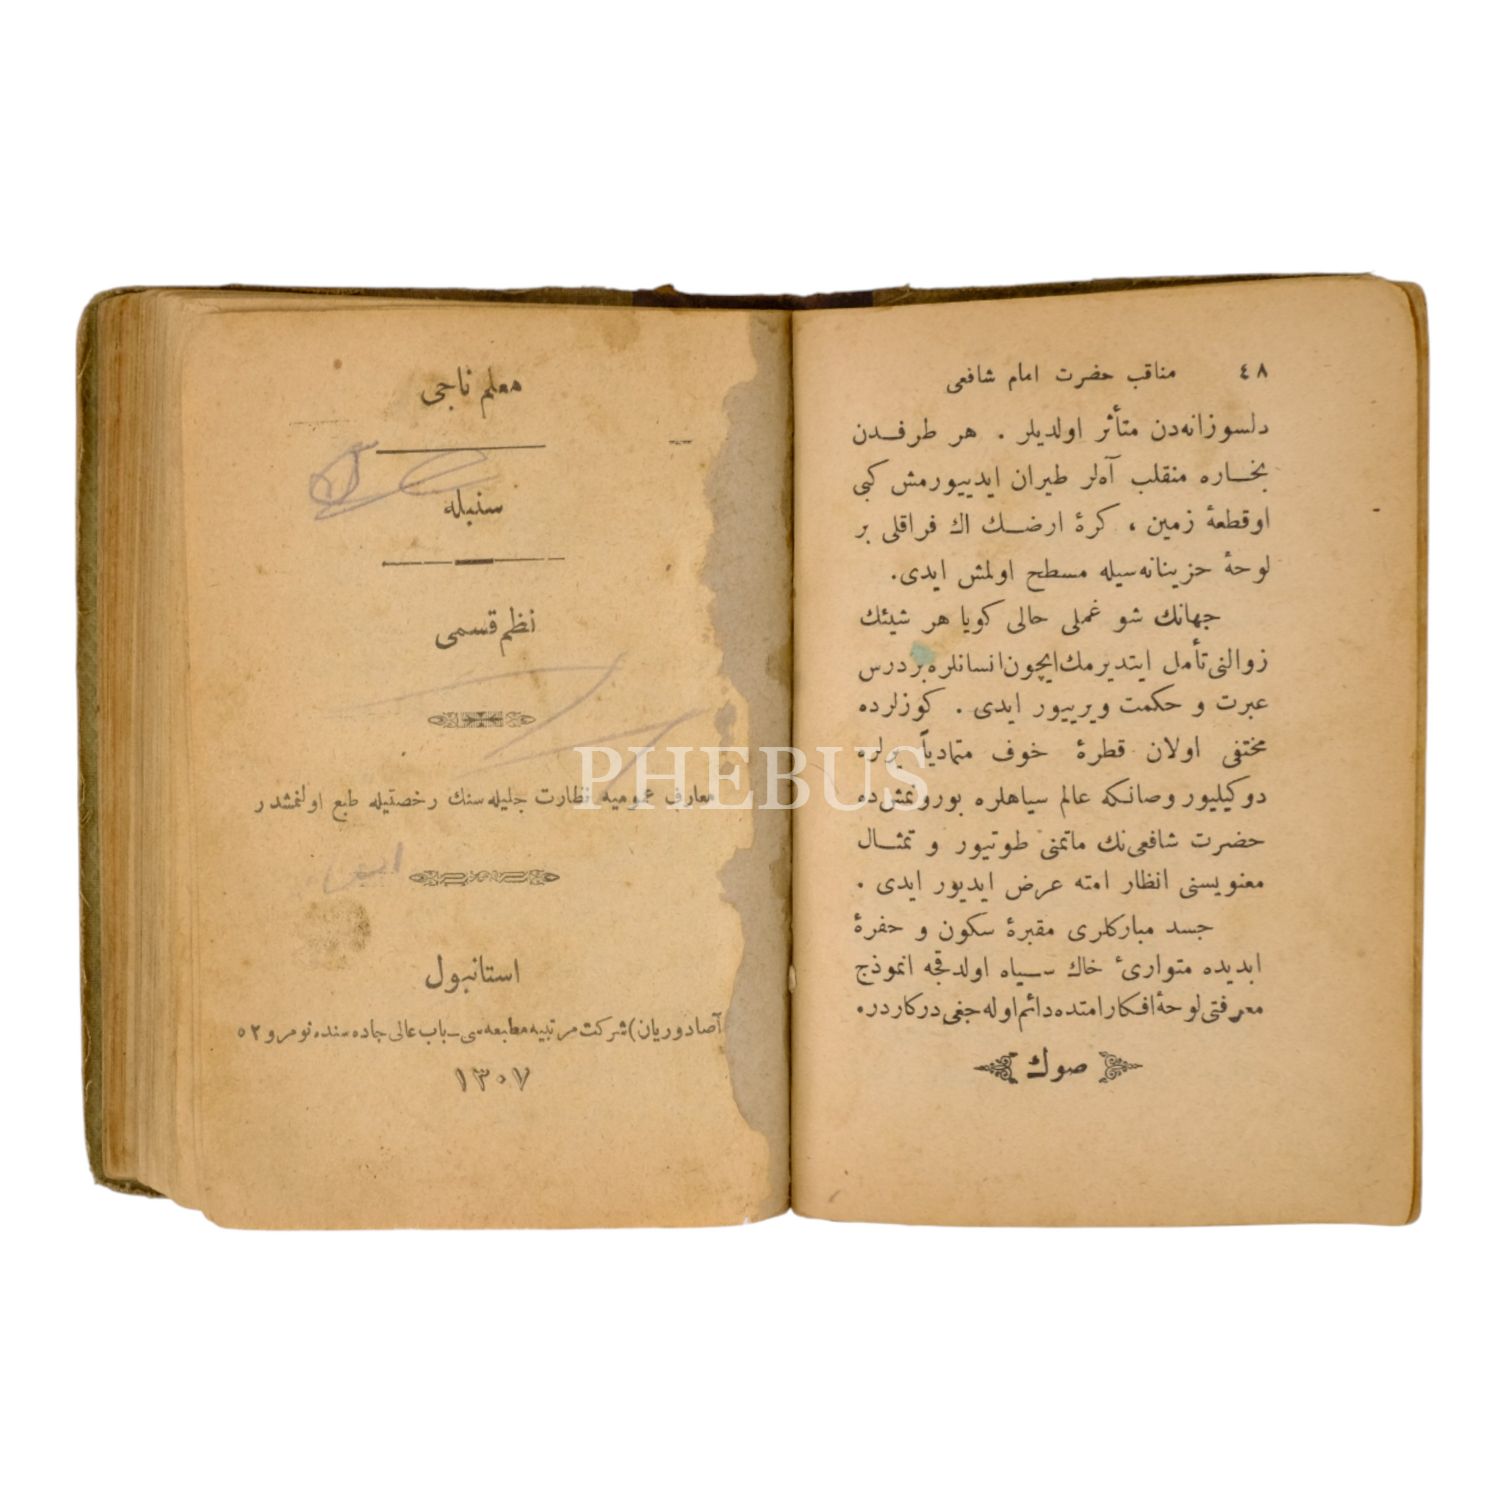 ٤٨ مناقب حضرت امام شافعی
دلسوزانه‌دن متأثر اولدیلر . هر طرفدن
بخاره منقلب آه‌لر طیران ایدییورمش کبی
اوقطعهٔ زمین ، کرهٔ ارضك اك فراقلی بر
لوحهٔ حزینانه‌سیله مسطح اولمش ایدی.
جهانك شو غملی حالی کویا هر شیئك
زوالنی تأمل ایتدیرمك ایچون انسانلره بر درس
عبرت و حکمت ویرییور ایدی . کوزلرده
مختفی اولان قطرهٔ خوف متمادیاً یرلره
دوکیلیور وصانکه عالم سیاهلره بورونمش ده
حضرت شافعی‌نك ماتمنی طوتیور و تمثال
معنویسنی انظار امته عرض ایدیور ایدی .
جسد مبارکلری مقبرهٔ سکون و حفرهٔ
ابدیده متواریٔ خاك سیاه اولدقجه انموذج
معرفتی لوحهٔ افکار امتده دائم اوله‌جغی درکاردر.
صوك
معلم ناجی
سنبله
نظم قسمی
معارف عمومیه نظارت جلیله‌سنك رخصتیله طبع اولنمشدر
استانبول
آصادوریان) شرکت مرتبیه مطبعه‌سی ــ باب عالی جاده‌سنده نومرو ٥٢
١٣٠٧
PHEBUS